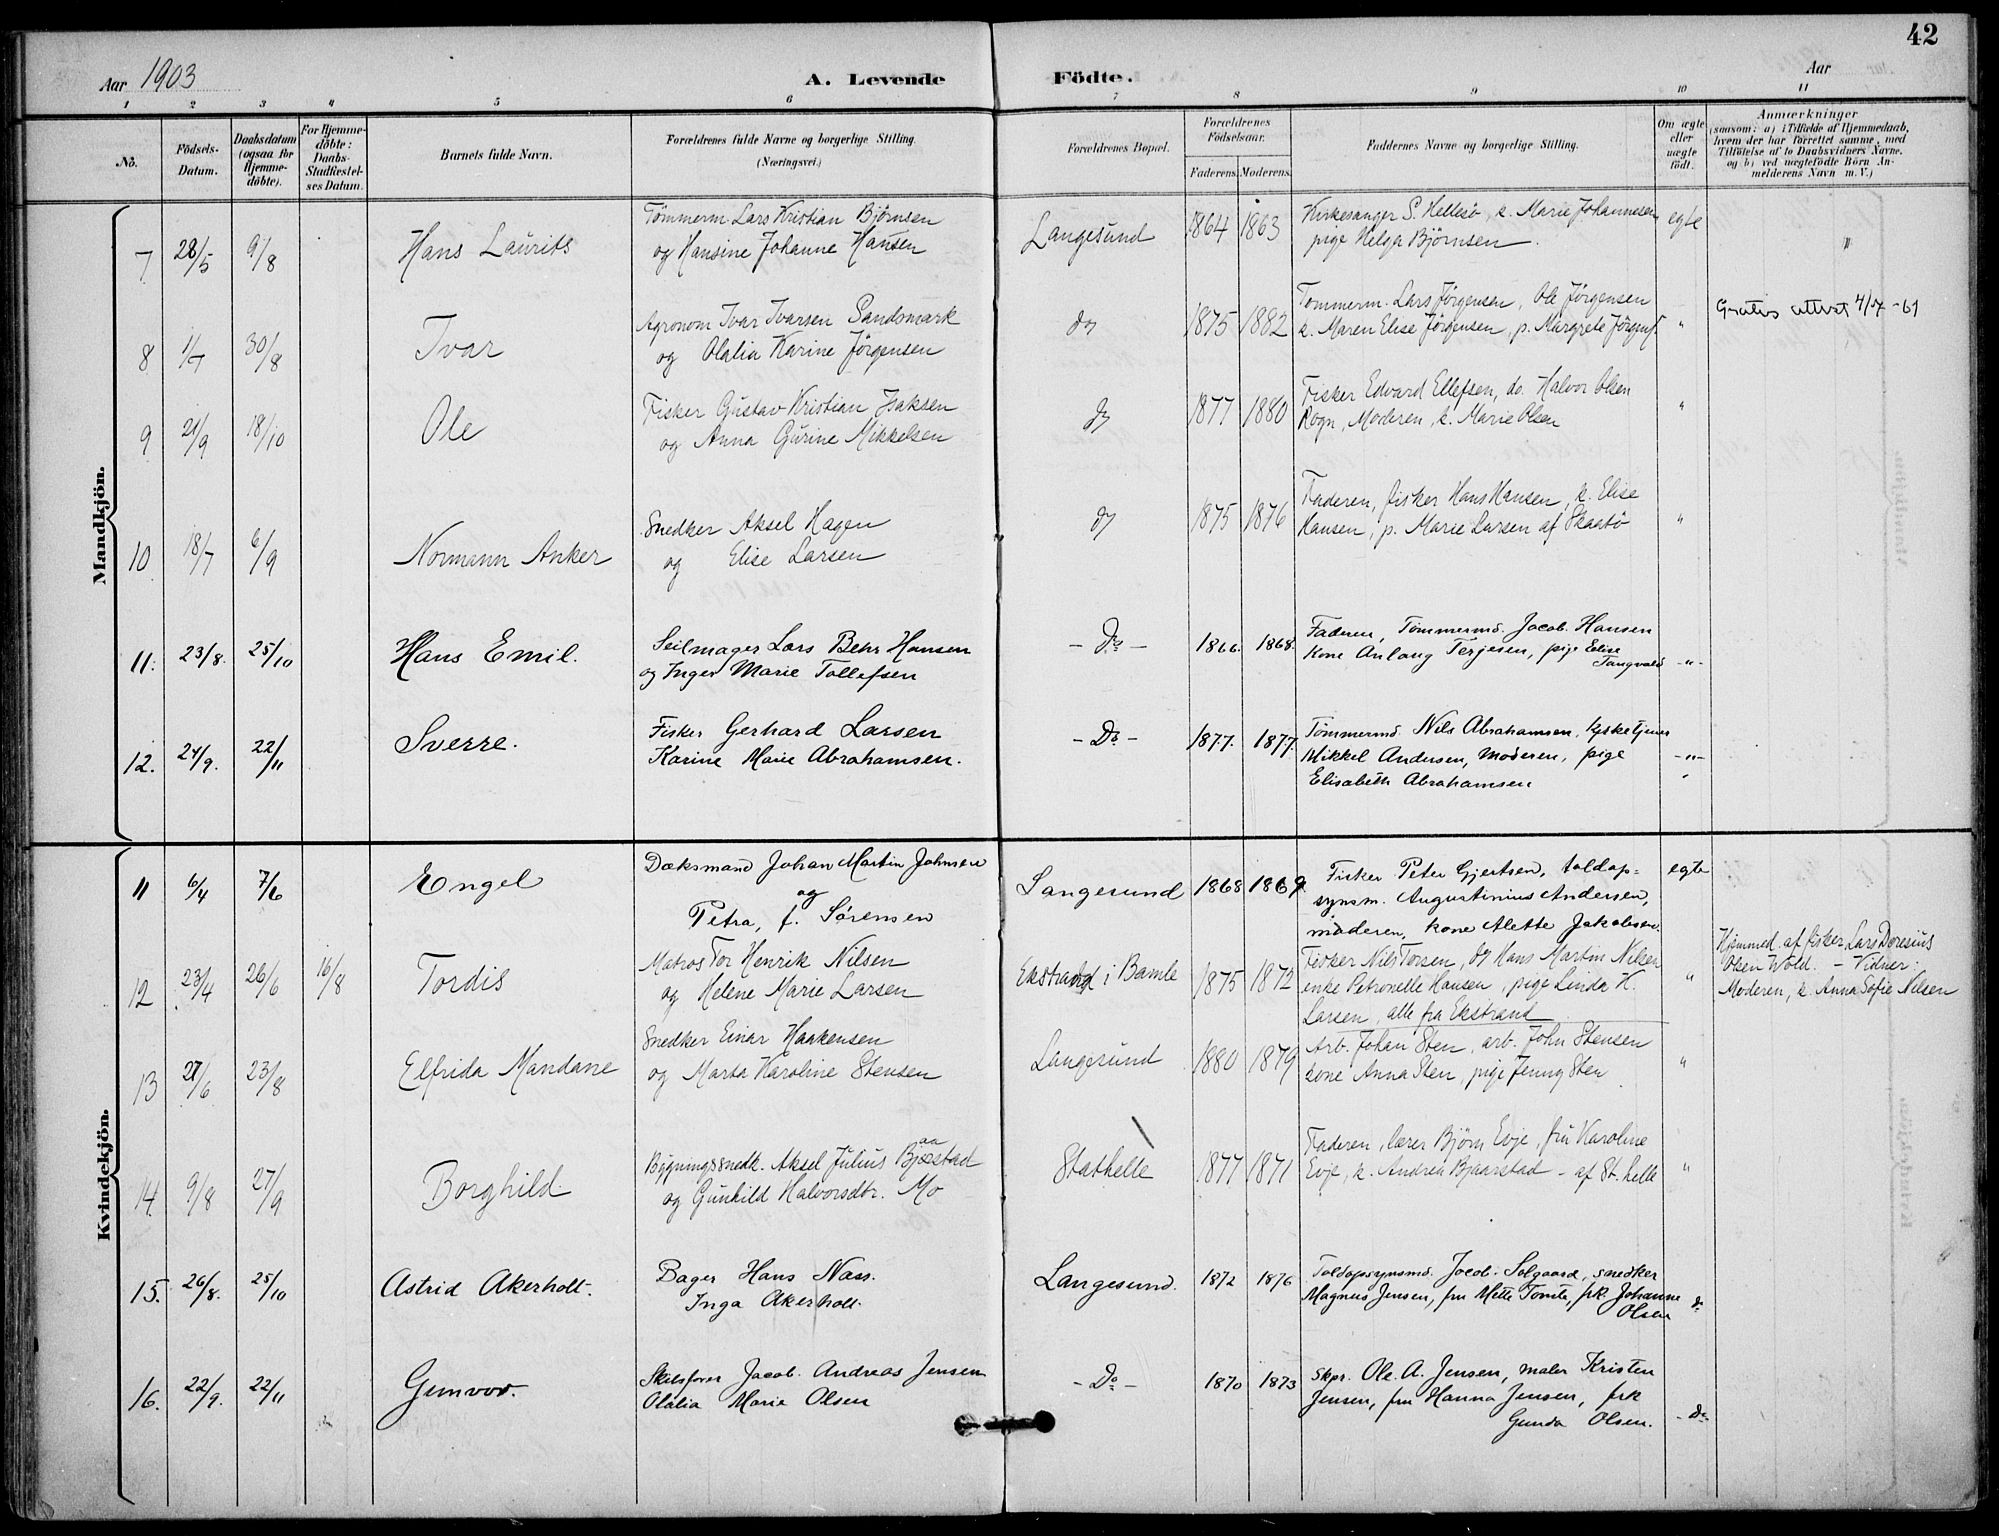 42
Aar 1903
A. Levende Födte.
Aar
1 2 3 4 5 6 7 8 9 10 11
No.
Födsels-Datum.
Daabsdatum (ogsaa for Hjemme-döbte).
For Hjemme-döbte: Daabs-Stadfæstel-ses Datum.
Barnets fulde Navn.
Forældrenes fulde Navne og borgerlige Stilling. (Næringsvei.)
Forældrenes Bopæl.
Forældrenes Födselsaar.
Faderens. Moderens.
Faddernes Navne og borgerlige Stilling.
Om ægte eller uægte födt.
Anmærkninger
(saasom: a) i Tilfælde af Hjemmedaab, hvem der har forrettet samme, med Tilföielse af to Daabsvidners Navne, og b) ved uægtefödte Börn An-melderens Navn m. V.)
Mandkjön.
7 28/5 9/8 Hans Laurits
Tømmerm. Lars Kristian Bjørnsen
og Hansine Johanne Hansen
Langesund 1864 1863
Kirkesanger S. Hellesö, k. Marie Johannesen
pige Helga Bjørnsen
egte "
8 1/7 30/8 Ivar
Agronom Ivar Ivarsen Sandsmark
og Olalia Karine Jörgensen
do 1875 1882
Tømmerm. Lars Jörgensen, Ole Jörgensen
k. Maren Elise Jörgensen, p. Margrete Jörgens.
" Gratis attest 4/7 -61
9 21/9 18/10 Ole
Fisker Gustav Kristian Isaksen
og Anna Gurine Mikkelsen
do 1877 1880
Fisker Edvard Ellefsen, do. Halvor Olsen
Rogn, Moderen, k. Marie Olsen
"
10 18/7 6/9 Normann Anker
Snedker Aksel Hagen
og Elise Larsen
do 1875 1876
Faderen, fisker Hans Hansen, k. Elise
Hansen, p. Marie Larsen af Skaatö
"
11. 23/8. 25/10 Hans Emil.
Seilmager Lars Behr Hansen
og Inger Marie Tollefsen
- Do - 1866. 1868.
Faderen, Tømmermd. Jacob. Hansen
Kone Anlaug Terjesen, pige Elise
Tangvald -"-
12. 24/9. 22/11 Sverre.
Fisker Gerhard Larsen
Karine Marie Abrahamsen.
- Do - 1877. 1877.
Tømmermd. Nils Abrahamsen,
Mikkel Andersen, Moderen, pige
Elisabeth Abrahamsen
-"-
Kvindekjön.
11 6/4 7/6 Engel
Dæksmand Johan Martin Johnsen
og
Petra, f. Sørensen
Langesund 1868 1869
Fisker Peter Gjertsen, toldop=
synsm. Augustinius Andersen,
moderen, kone Alette Jakobsen.
egte
12 23/4 26/6 16/8 Tordis
Matros Tor Henrik Nilsen
og Helene Marie Larsen
Ekstrand i Bamle 1875 1872
Fisker Nils Torsen, do Hans Martin Nilsen
enke Petronelle Hansen, pige Linda K.
Larsen, alle fra Ekstrand
"
Hjemmed. af fisker Lars Doresius
Olsen Wold. - Vidner:
Moderen, k. Anna Sofie Nilsen
13 21/6 23/8 Elfrida Mandane
Snedker Einar Haakensen
og Marta Karoline Stensen
Langesund 1880 1879
Arb. Johan Sten, arb. John Stensen
kone Anna Sten, pige Jenny Sten
"
14. 9/8 27/9 Borghild.
Bygningssnedk. Aksel Julius Bjaastad
og Gunhild Halvorsdtr. Mo
Stathelle 1877 1871
Faderen, lærer Bjørn Evje, fru Karoline
Evje, k. Andrea Bjaarstad - af St.helle
"
15. 26/8. 25/10 Astrid Akerholt.
Bager Hans Nass.
Inga Akerholt.
Langesund. 1872 1876
Toldopsynsmd. Jacob. Solgaard, snedker
Magnus Jensen, fru Mette Tomte, frk. Johanne
Olsen
do
16. 22/9. 22/11 Gunvor.
Skibsfører Jacob. Andreas Jensen
Olalia Marie Olsen
- Do - 1870 1873
Skpr. Ole. A. Jensen, maler Kristen
Jensen, fru Hanna Jensen, frk
Gunda Olsen.
- Do